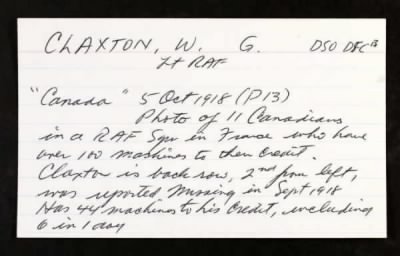 CLAXTON, W. G. DSO DFC B
Lt RAF
"Canada" 5 Oct 1918 (P13)
Photo of 11 Canadians
in a RAF Sqn in France who have
over 100 machines to their credit.
Claxton is back row, 2nd from left,
was reported missing in Sept 1918
Has 44 machines to his credit, including
6 in 1 day